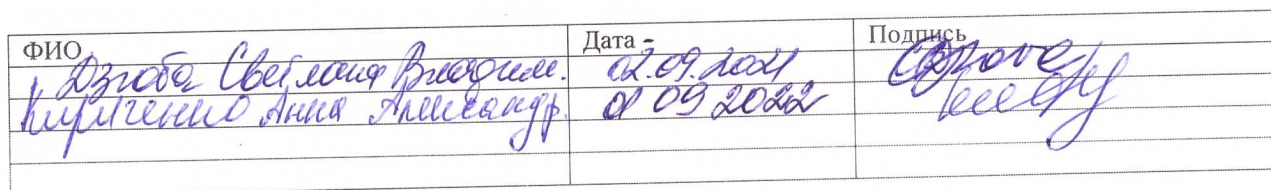 ФИО Дата - Подпись
Дзюба Светлана Владим. 02.09.2021
Кириченко Анна Александр. 01 09 2022